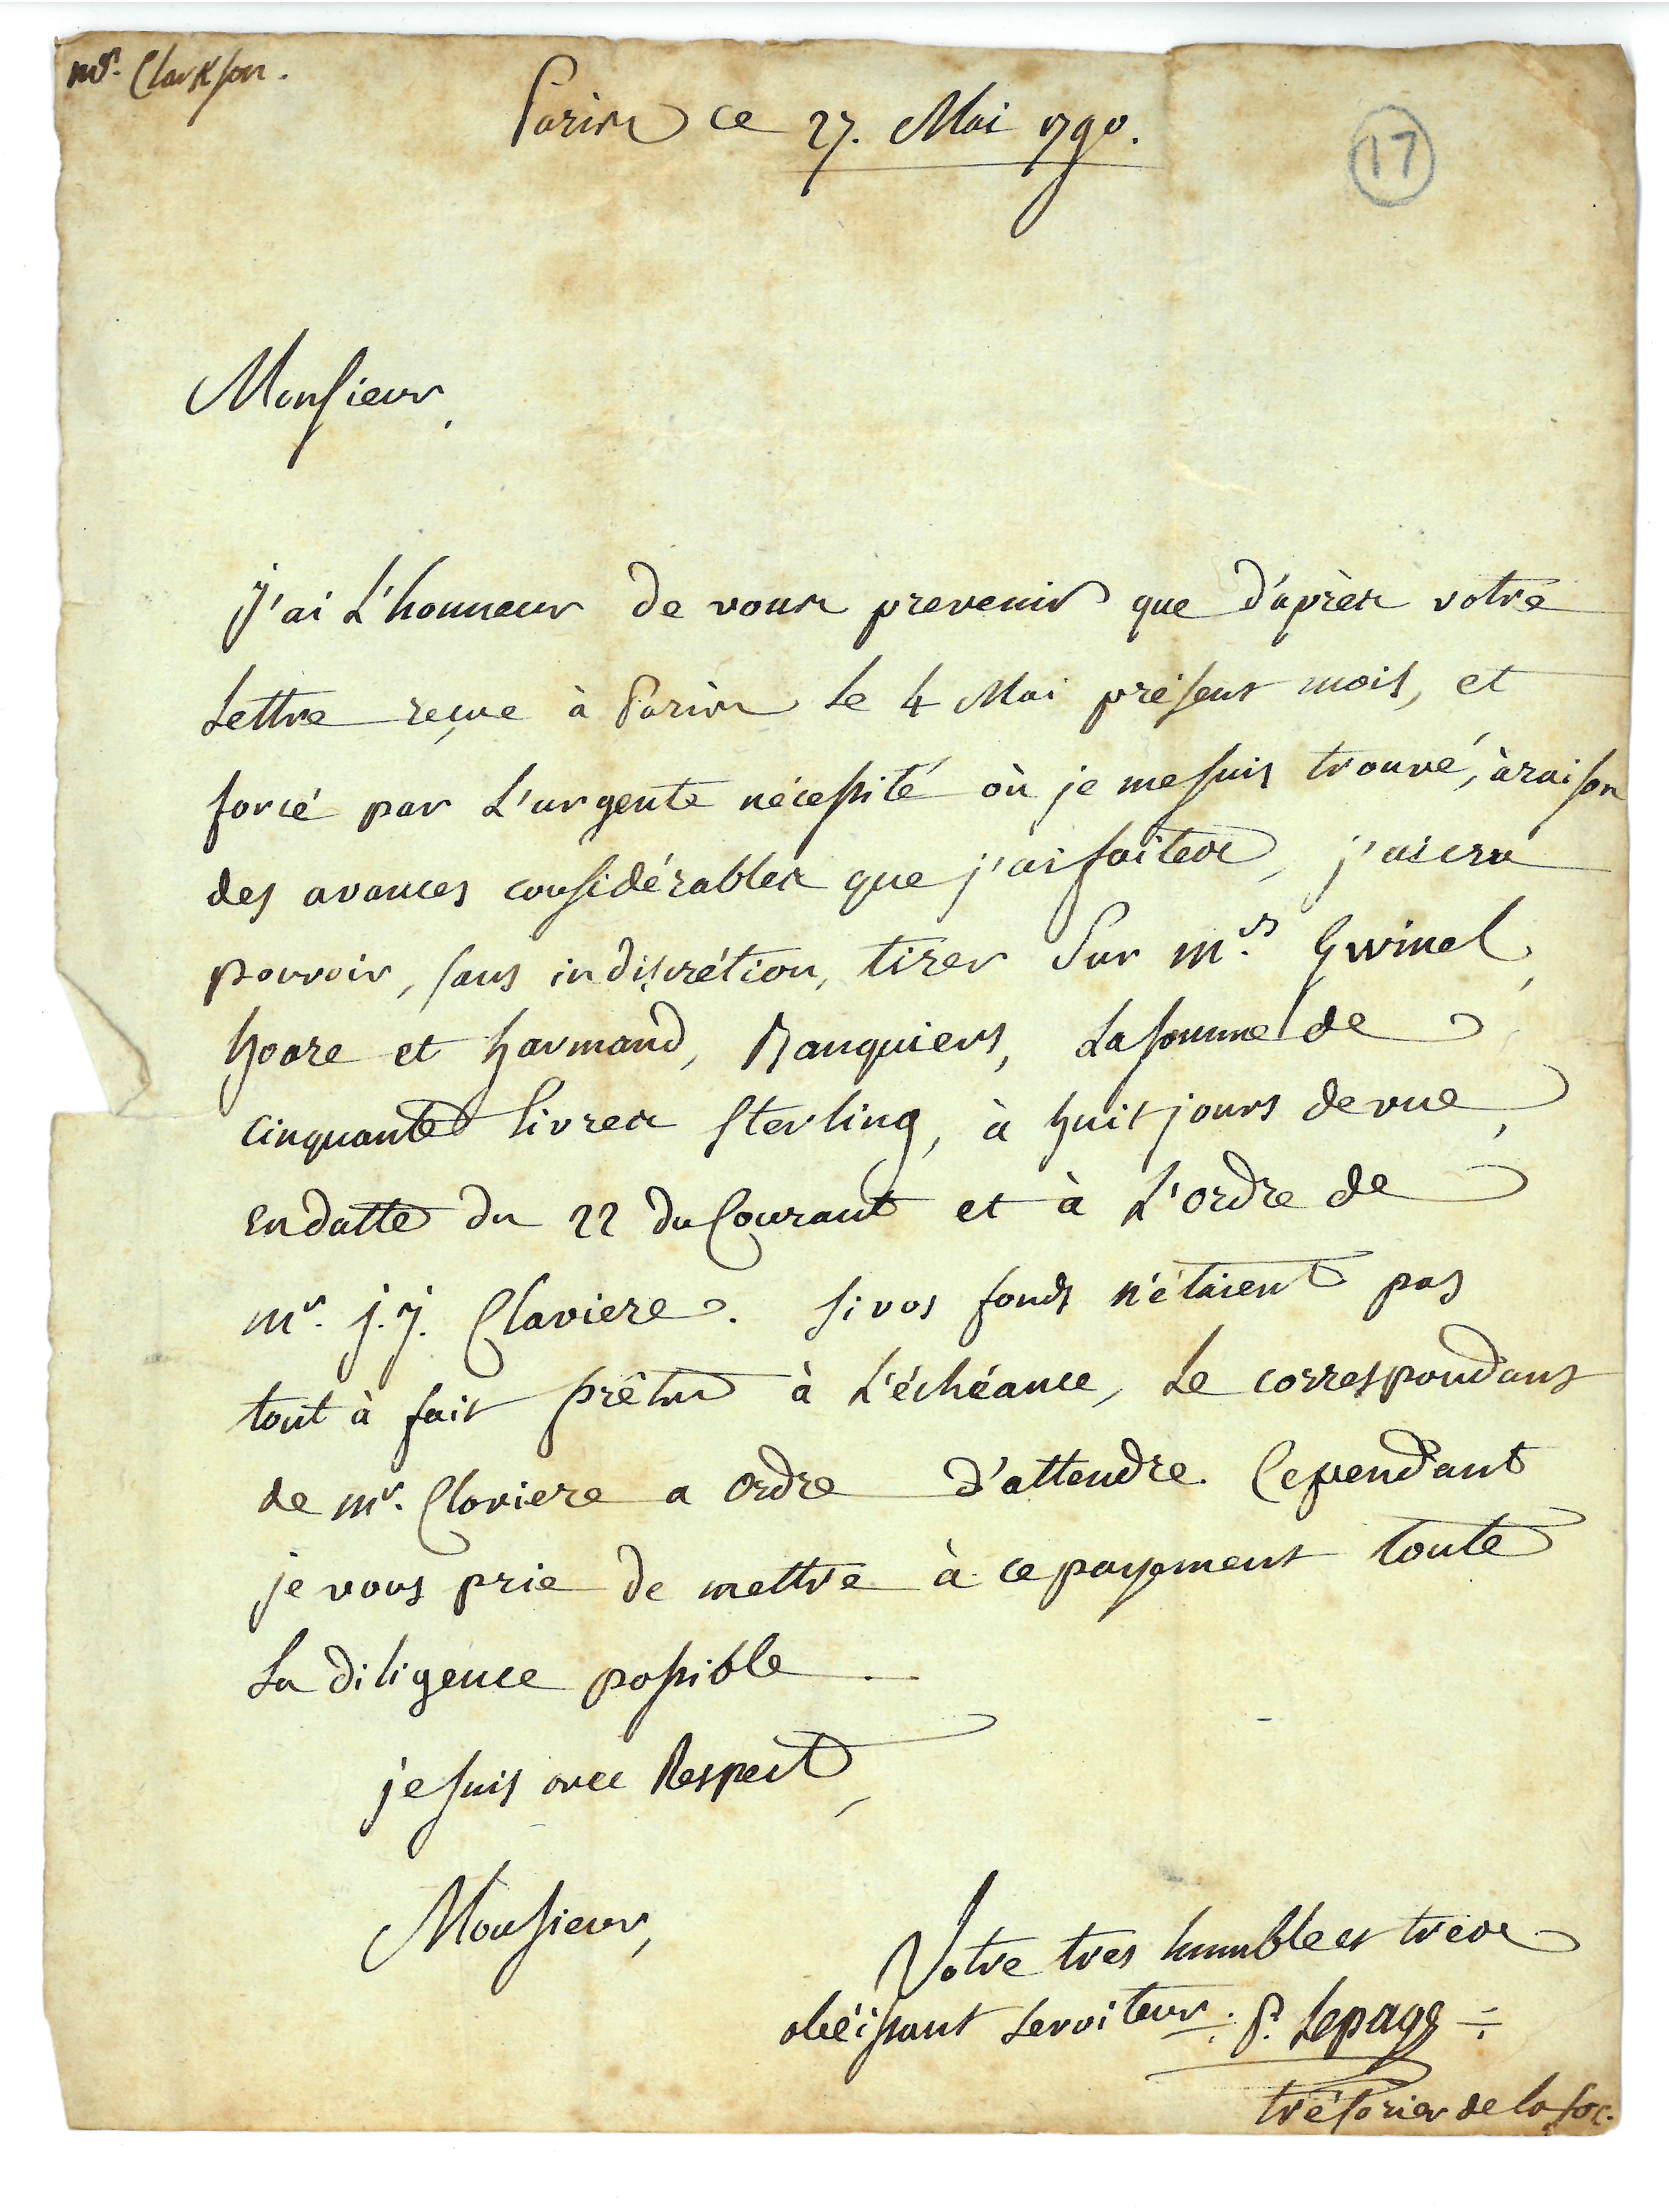 mr. Clarkson.
Paris ce 27. Mai 1790.
17
Monsieur,
J'ai L'honneur de vous prevenir que d'après votre
Lettre reçue à Paris le 4 Mai présent mois, et
forcé par L'urgente nécessité où je me suis trouvé, à raison
des avances considérables que j'ai faites, j'ai cru
pouvoir, sans indiscrétion, tirer sur mrs. Gwinel,
hoare et harmand, Banquiers, La somme de
cinquante livres sterling, à huit jours de vue,
en datte du 22 du Courant et à L'ordre de
mr. j.j. Claviere. si vos fonds n'étaient pas
tout à fait prêts à L'échéance, Le correspondant
de mr. Claviere a ordre d'attendre. Cependant
je vous prie de mettre à ce payement toute
La diligence possible.
je suis avec Respect,
Monsieur,
Votre tres humble et tres
obéissant serviteur. P. Lepage
trésorier de la soc.